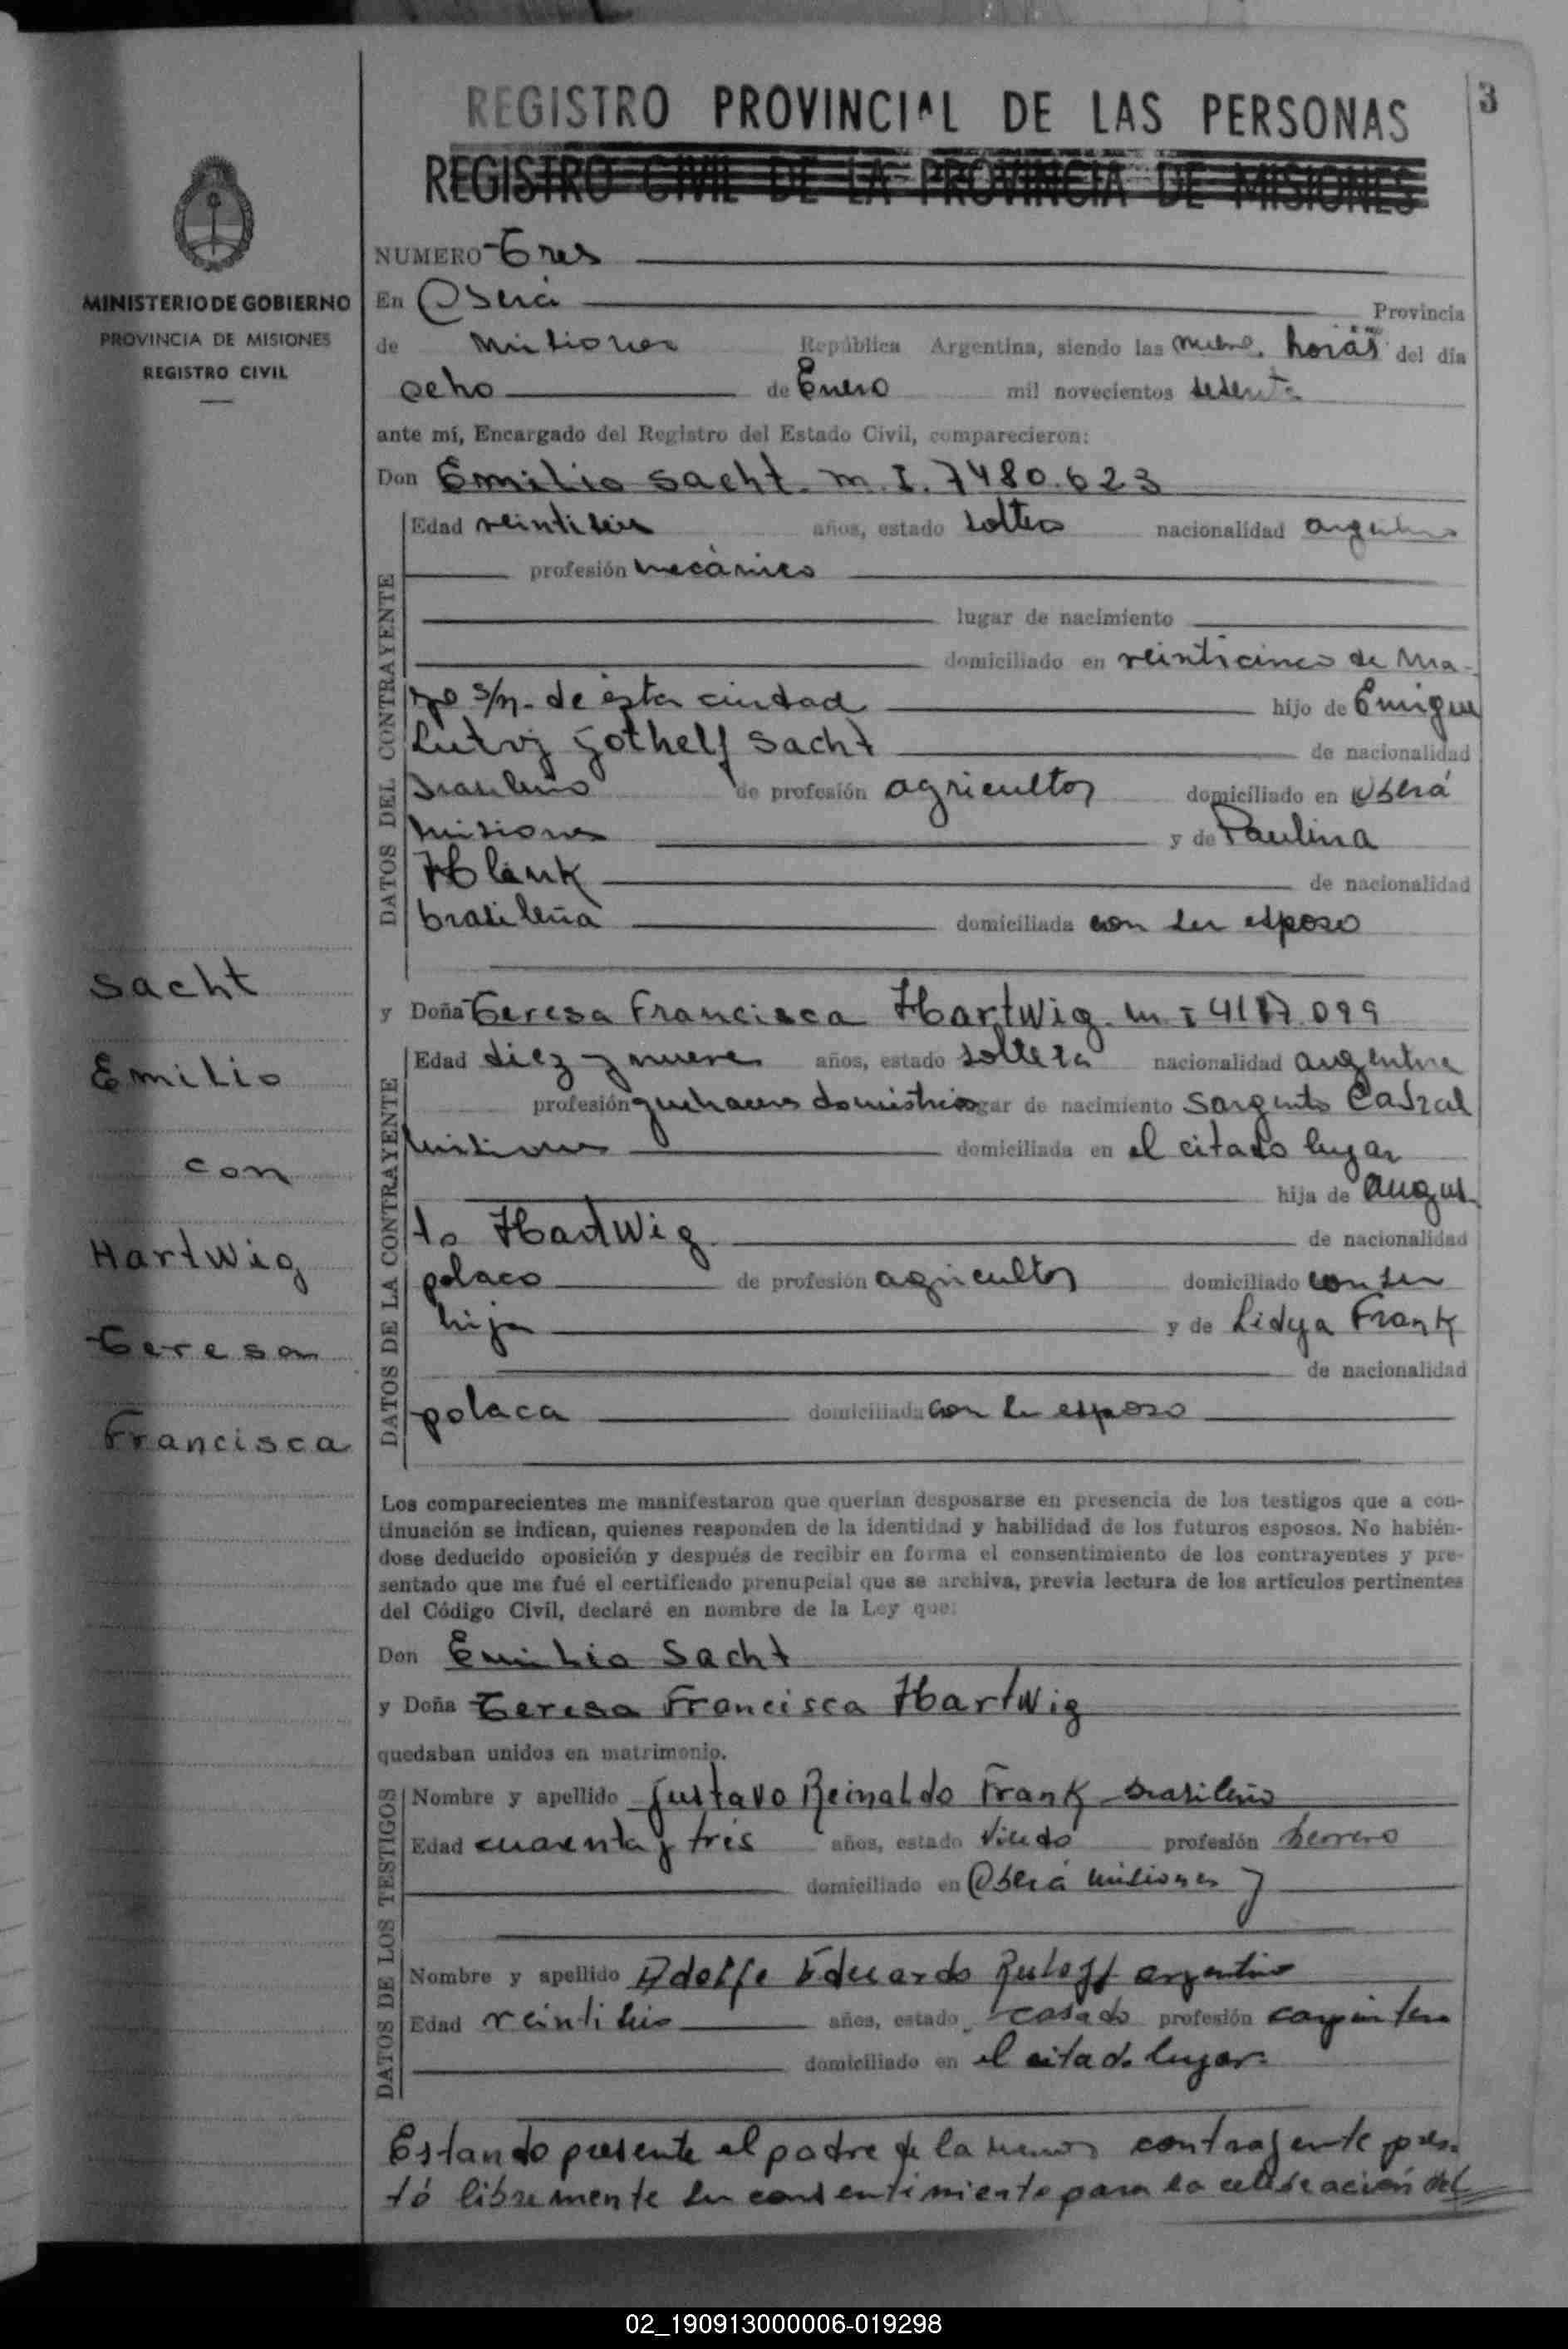 3
REGISTRO PROVINCIAL DE LAS PERSONAS
REGISTRO CIVIL DE LA PROVINCIA DE MISIONES
MINISTERIO DE GOBIERNO
PROVINCIA DE MISIONES
REGISTRO CIVIL
NUMERO Tres
En Oberá Provincia
de Misiones República Argentina, siendo las nueve horas del día
ocho de Enero mil novecientos
ante mí, Encargado del Registro del Estado Civil, comparecieron:
Don Emilio Sacht. M.I. 7480.623
DATOS DEL CONTRAYENTE
Edad veintiseis años, estado soltero nacionalidad argentino
profesión mecánico
lugar de nacimiento
domiciliado en veinticinco de Ma-
yo s/n. de ésta ciudad hijo de Enrique
Lutvj Gothelf Sacht de nacionalidad
brasileño de profesión agricultor domiciliado en Oberá
Misiones y de Paulina
Hlenk de nacionalidad
brasileña domiciliada con su esposo
y Doña Teresa Francisca Hartwig. M.I 4117.099
DATOS DE LA CONTRAYENTE
Edad diez y nueve años, estado soltera nacionalidad argentina
profesión quehaceres domésticos lugar de nacimiento Sargento Cabral
Misiones domiciliada en el citado lugar
hija de Augus-
to Hartwig de nacionalidad
polaco de profesión agricultor domiciliado con su
hija y de Lidya Frank
de nacionalidad
polaca domiciliada con su esposo
Sacht
Emilio
con
Hartwig
Teresa
Francisca
Los comparecientes me manifestaron que querían desposarse en presencia de los testigos que a con-
tinuación se indican, quienes responden de la identidad y habilidad de los futuros esposos. No habién-
dose deducido oposición y después de recibir en forma el consentimiento de los contrayentes y pre-
sentado que me fué el certificado prenupcial que se archiva, previa lectura de los artículos pertinentes
del Código Civil, declaré en nombre de la Ley que:
Don Emilio Sacht
y Doña Teresa Francisca Hartwig
quedaban unidos en matrimonio.
DATOS DE LOS TESTIGOS
Nombre y apellido Gustavo Reinaldo Frank brasileño
Edad cuarenta y tres años, estado viudo profesión herrero
domiciliado en Oberá Misiones y
Nombre y apellido Adolfo Eduardo argentino
Edad veintiseis años, estado casado profesión carpintero
domiciliado en el citado lugar.
Estando presente el padre de la menor contrayente pres-
tó libremente su consentimiento para la celebración del
02_190913000006-019298